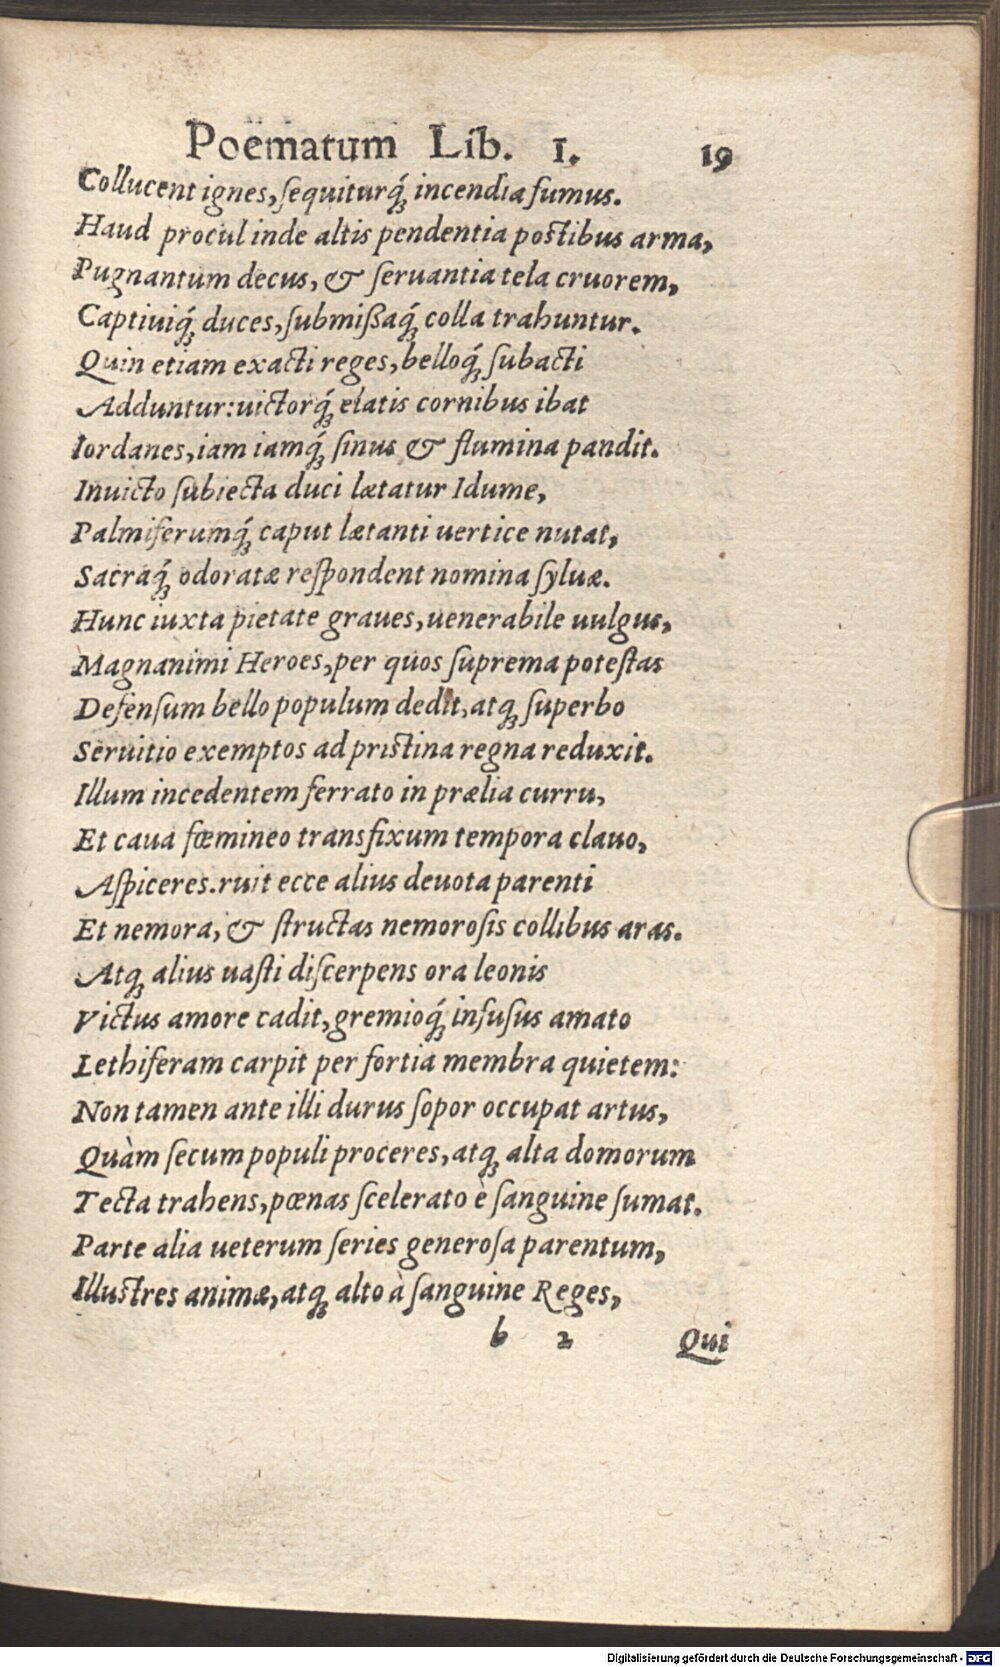 Poematum Lib. I. 19
Collucent ignes, ſequiturq́; incendia fumus.
Haud procul inde altis pendentia poſtibus arma,
Pugnantum decus, & ſeruantia tela cruorem,
Captiuiq́; duces, ſubmiſſaq́; colla trahuntur.
Quin etiam exacti reges, belloq́; ſubacti
Adduntur: uictorq́; elatis cornibus ibat
Iordanes, iam iamq́; ſinus & flumina pandit.
Inuicto ſubiecta duci lætatur Idume,
Palmiferumq́; caput lætanti uertice nutat,
Sacraq́; odoratæ reſpondent nomina ſyluæ.
Hunc iuxta pietate graues, uenerabile uulgus,
Magnanimi Heroes, per quos ſuprema poteſtas
Defenſum bello populum dedit, atq; ſuperbo
Seruitio exemptos ad priſtina regna reduxit.
Illum incedentem ferrato in prælia curru,
Et caua fœmineo transfixum tempora clauo,
Aſpiceres. ruit ecce alius deuota parenti
Et nemora, & ſtructas nemoroſis collibus aras.
Atq; alius uaſti diſcerpens ora leonis
Victus amore cadit, gremioq́; infuſus amato
Lethiferam carpit per fortia membra quietem:
Non tamen ante illi durus ſopor occupat artus,
Quàm ſecum populi proceres, atq; alta domorum
Tecta trahens, pœnas ſcelerato è ſanguine ſumat.
Parte alia ueterum ſeries generoſa parentum,
Illuſtres animæ, atq; alto à ſanguine Reges,
b 2 Qui
Digitalisierung gefördert durch die Deutsche Forschungsgemeinschaft - DFG